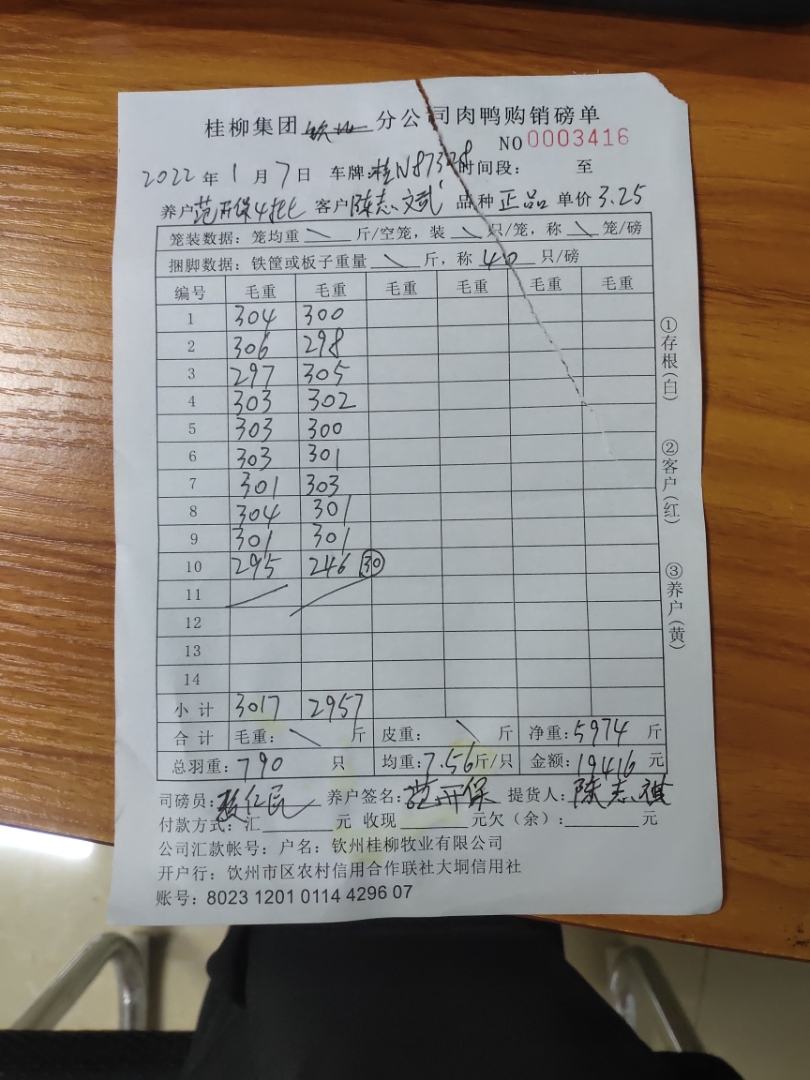 桂柳集团钦州分公司肉鸭购销磅单
NO 0003416
2022年1月7日 车牌:桂N87328 时间段: 至
养户范开保4批 客户陈志文武 品种正品 单价3.25
笼装数据: 笼均重\斤/空笼, 装\只/笼, 称\笼/磅
捆脚数据: 铁筐或板子重量\斤, 称40只/磅
编号 毛重 毛重 毛重 毛重 毛重 毛重
1 304 300
2 306 298
3 297 305
4 303 302
5 303 300
6 303 301
7 301 303
8 304 301
9 301 301
10 295 246 ㉚
11
12
13
14
小计 3017 2957
合计 毛重: \ 斤 皮重: \ 斤 净重: 5974 斤
总羽重: 790 只 均重: 7.56斤/只 金额: 19416元
司磅员: 张仁民 养户签名: 范开保 提货人: 陈志祺
付款方式: 汇 元 收现 元欠(余): 元
公司汇款帐号: 户名: 钦州桂柳牧业有限公司
开户行: 饮州市区农村信用合作联社大垌信用社
账号: 8023 1201 0114 4296 07
①存根(白)
②客户(红)
③养户(黄)